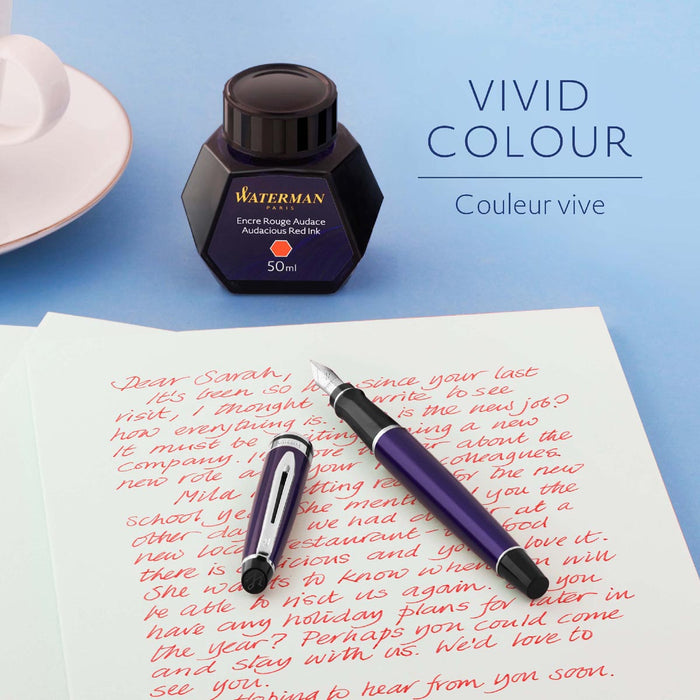 VIVID
COLOUR
Couleur vive
WATERMAN
PARIS
Encre Rouge Audace
Audacious Red Ink
50ml
Dear Sarah,
It's been so since your last
visit, I thought write to see
how everything is. is the new job?
It must be a new
company. about the
new role your colleagues.
Mild for the new
school you the
other day we had at a
new local restaurant food
there is and love it.
She to know when will
be able to visit us again. you
have any holiday plans for later in
the year? Perhaps you could come
and stay with us. We'd love to
see you.
Hoping to hear from you soon.